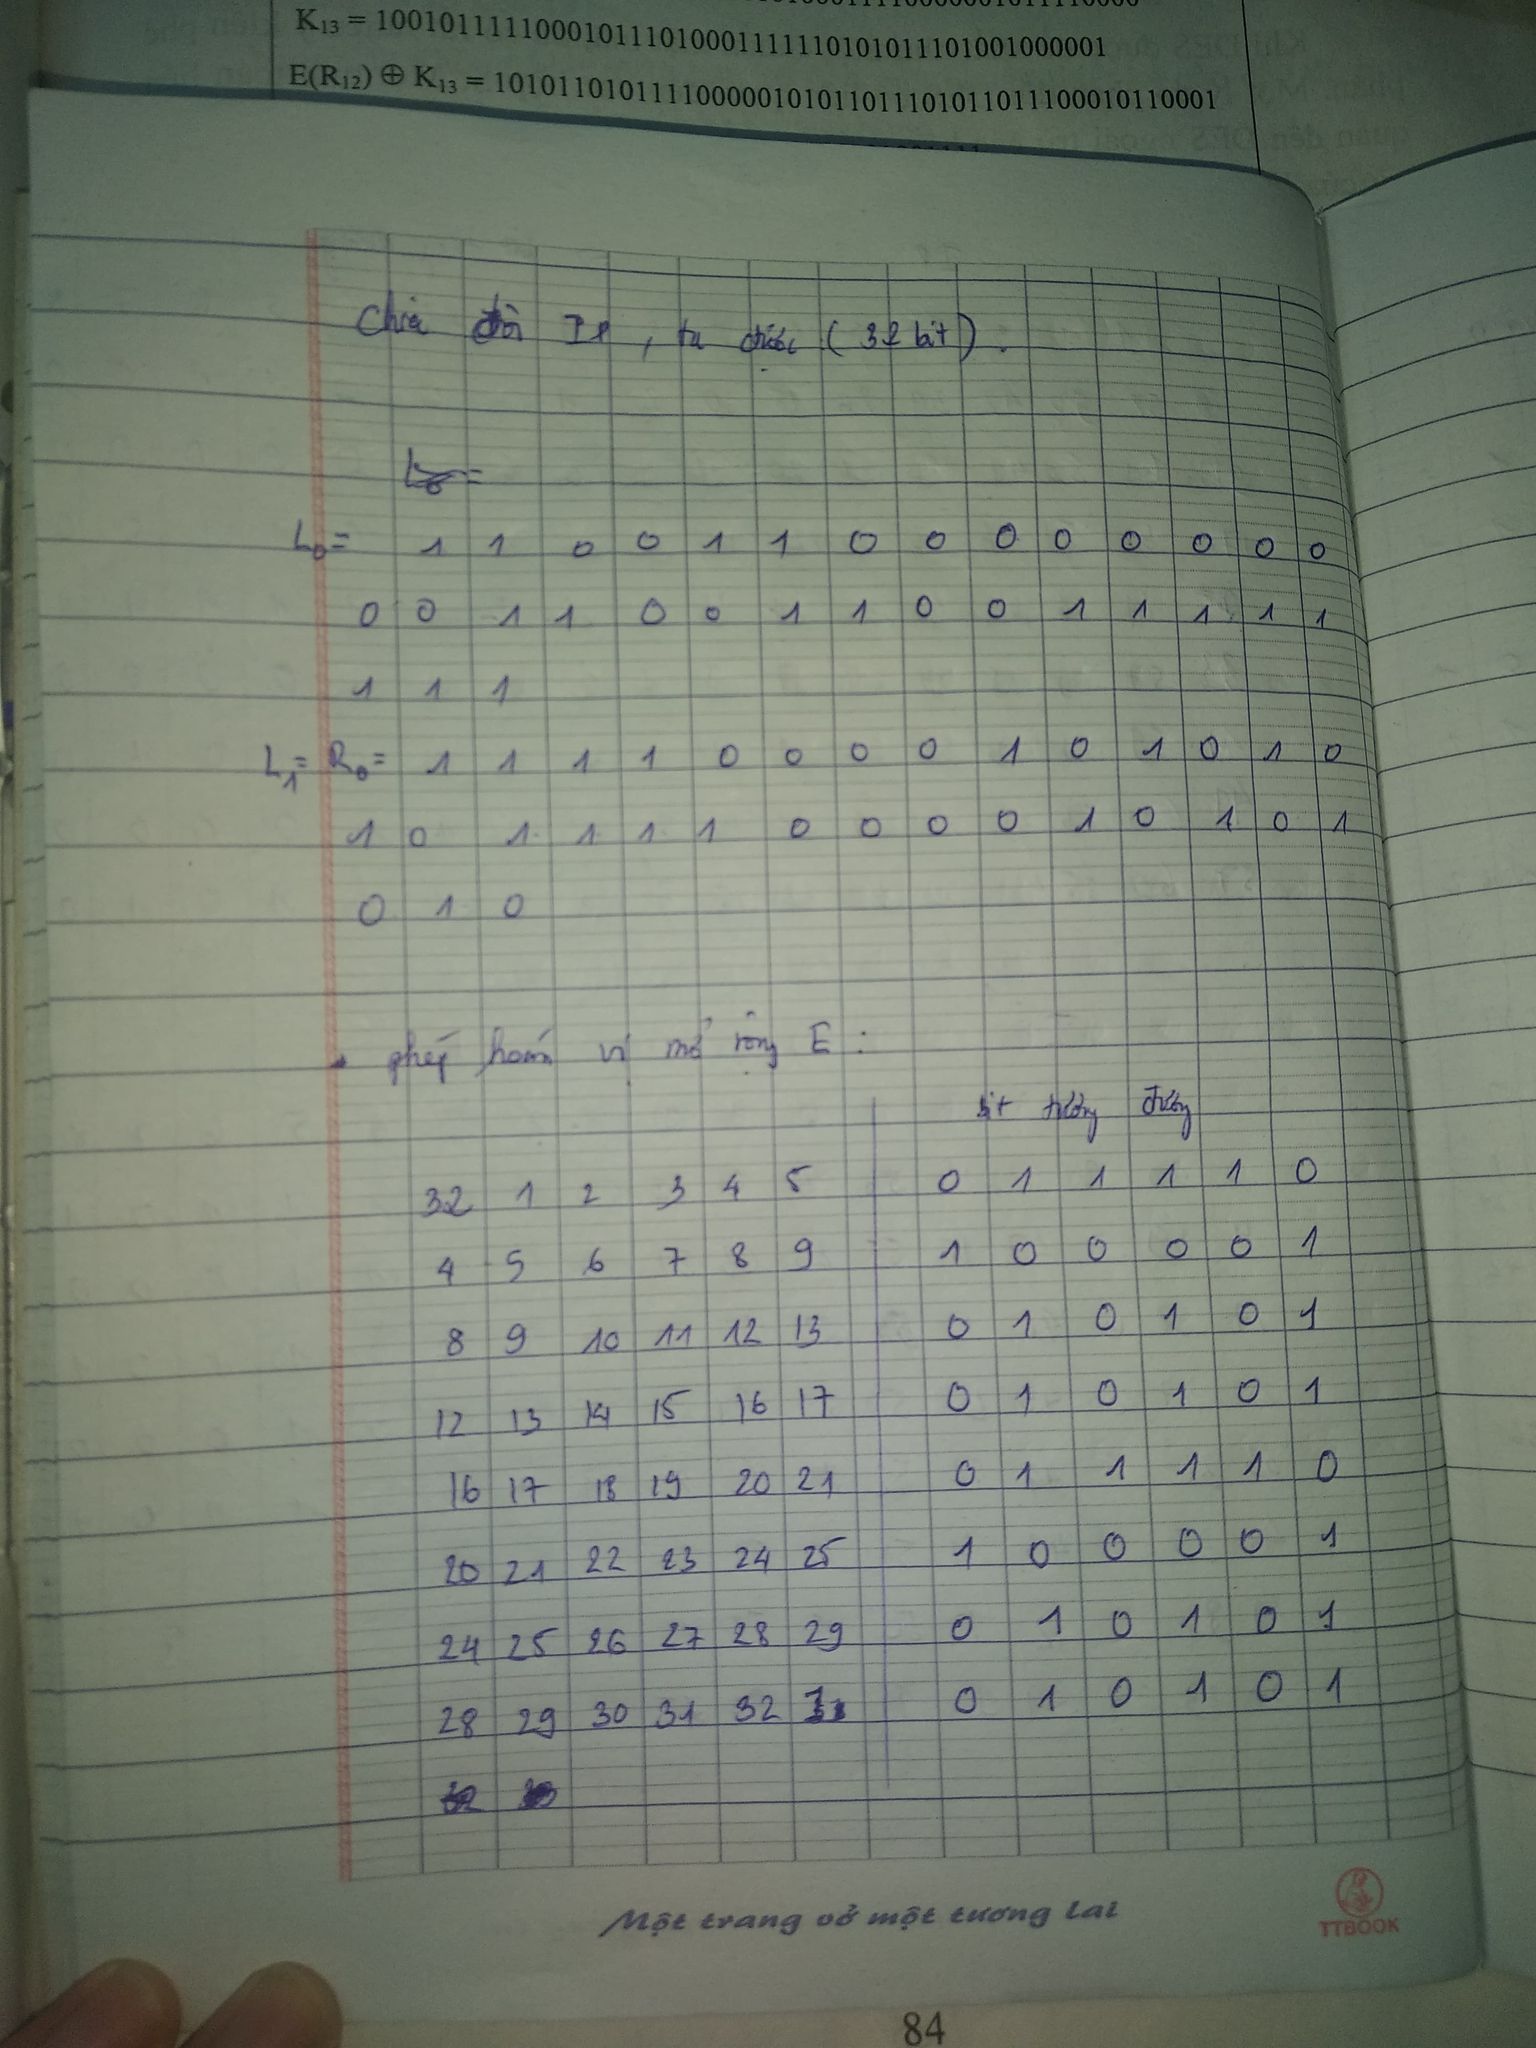 K₁₃ = 100101111100010111010001111110101011101001000001
E(R₁₂) ⊕ K₁₃ = 101011010111100000101011011101011011100010110001
Chia đôi IP, ta được (32 bit).
L₀ =
L₀ = 1 1 0 0 1 1 0 0 0 0 0 0 0 0
0 0 1 1 0 0 1 1 0 0 1 1 1 1 1
1 1 1
L₁ = R₀ = 1 1 1 1 0 0 0 0 1 0 1 0 1 0
1 0 1 1 1 1 0 0 0 0 1 0 1 0 1
0 1 0
phép hoán vị mở rộng E :
bit tương đương
32 1 2 3 4 5 0 1 1 1 1 0
4 5 6 7 8 9 1 0 0 0 0 1
8 9 10 11 12 13 0 1 0 1 0 1
12 13 14 15 16 17 0 1 0 1 0 1
16 17 18 19 20 21 0 1 1 1 1 0
20 21 22 23 24 25 1 0 0 0 0 1
24 25 26 27 28 29 0 1 0 1 0 1
28 29 30 31 32 1 0 1 0 1 0 1
Một trang vở một tương lai
TTBOOK
84